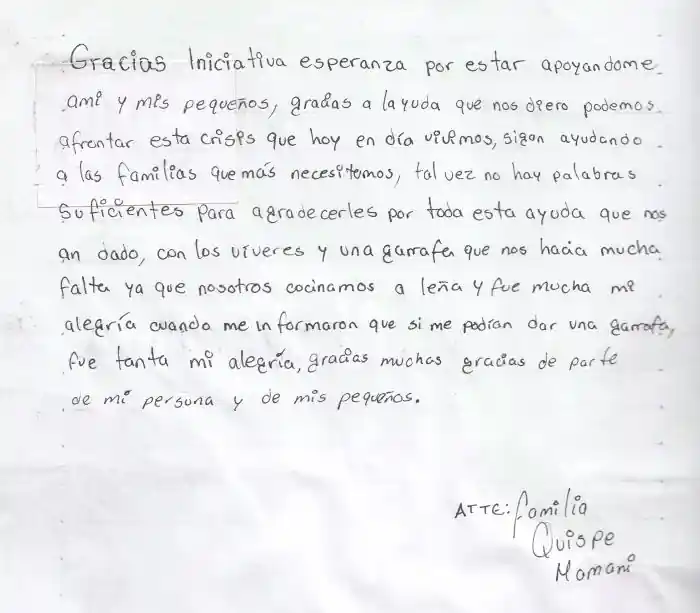 Gracias Iniciativa esperanza por estar apoyandome
ami y mis pequeños, gracias a layuda que nos diero podemos
afrontar esta crisis que hoy en día vivimos, sigan ayudando
a las familias que más necesitamos, tal vez no hay palabras
suficientes para agradecerles por toda esta ayuda que nos
an dado, con los víveres y una garrafa que nos hacia mucha
falta ya que nosotros cocinamos a leña y fue mucha mi
alegría cuando me informaron que si me podían dar una garrafa,
fue tanta mi alegría, gracias muchas gracias de parte
de mi persona y de mis pequeños.
ATTE: familia
Quispe
Mamani